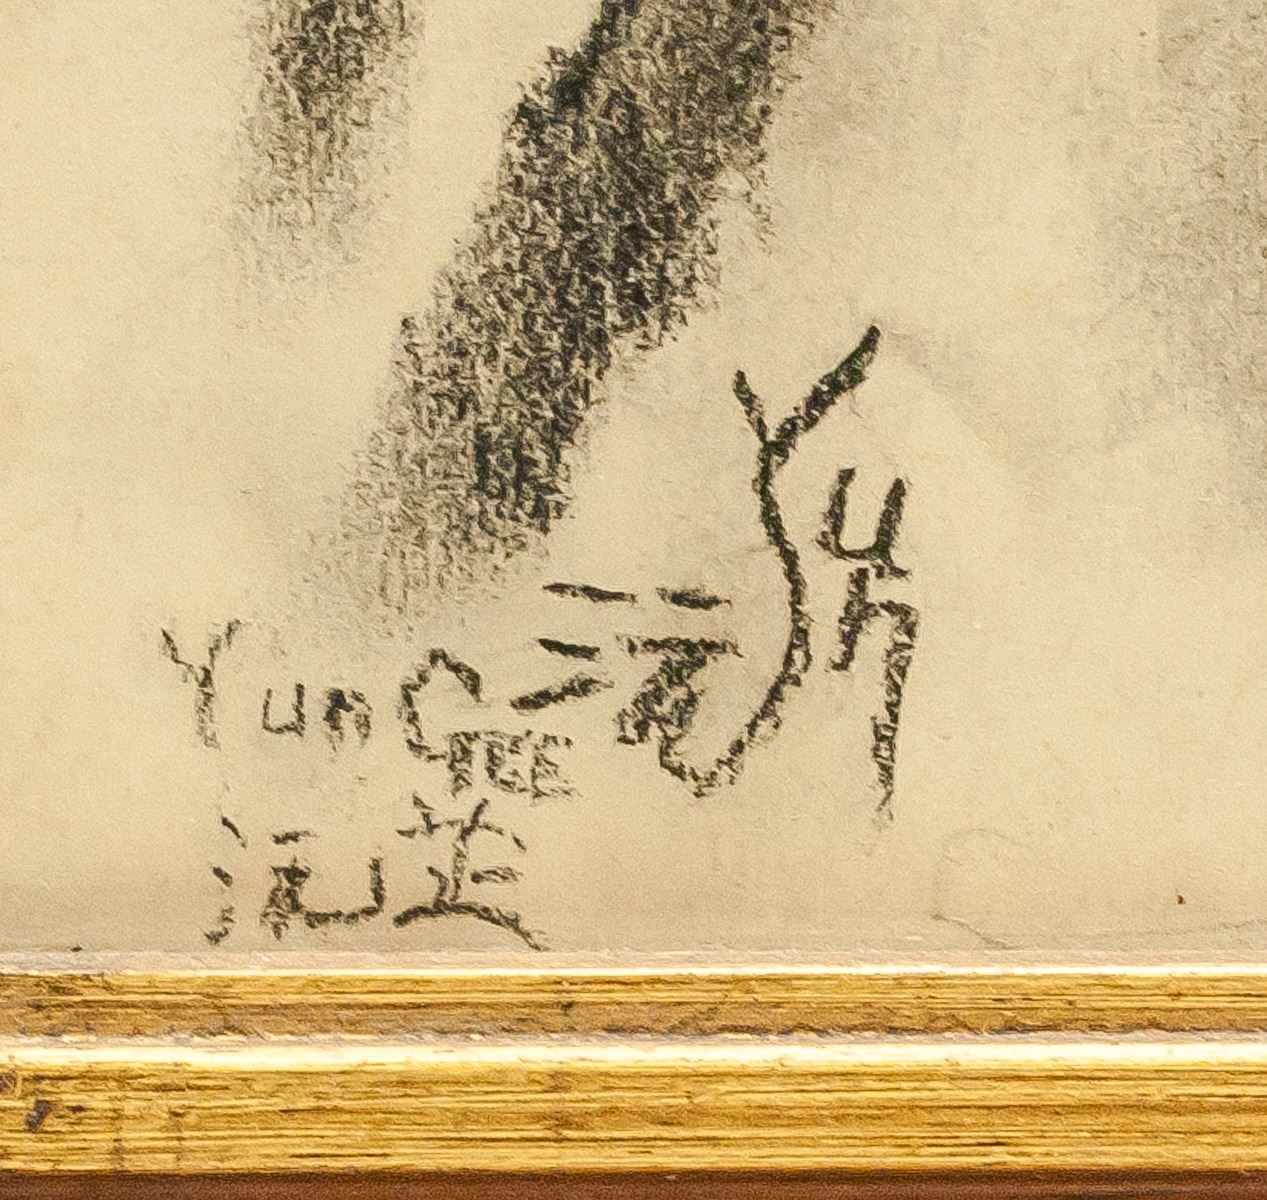 Yun
沅
Yun GEE
沅芷